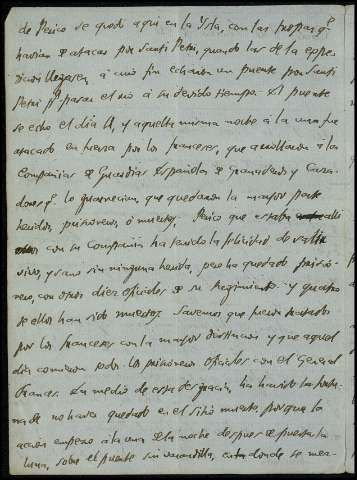 de Perico se quedo aqui en la Ysla, con las tropas qe.
havian de atacar por Santi Petri, quando las de la expe-
dicion llegasen, á cuio fin echaron un puente por Santi
Petri pa. pasar el rio á su devido tiempo. El puente
se echo el dia 2, y aquella misma noche á la una fue
atacado en fuerza por los franceses, que arrollaron á las
Compañias de Guardias Españolas de Granaderos y Caza-
dores qe. lo guarnecian, que quedaron la mayor parte
heridos, prisioneros, ó muertos. Perico que estaba alli
con su Compañia ha tenido la felicidad de salir
vivo, y sano sin ninguna herida, pero ha quedado prisio-
nero, con otros diez oficiales de su Regimiento y quatro
de ellos han sido muertos. Savemos que fueron tratados
por los franceses con la mayor distincion, y que aquel
dia comieron todos los prisioneros oficiales con el General
frances. En medio de esta desgracia, ha havido la fortu-
na de no haver quedado en el sitio muerto porque la
accion empezo á la una de la noche despues de puesta la
luna, sobre el puente sin varandilla, donde se mez-